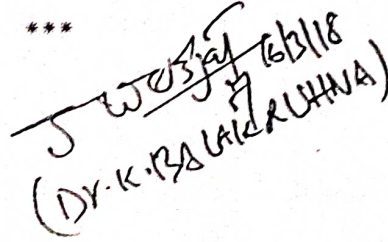 ***
16/3/18
(Dr.K.BALAKRUHNA)